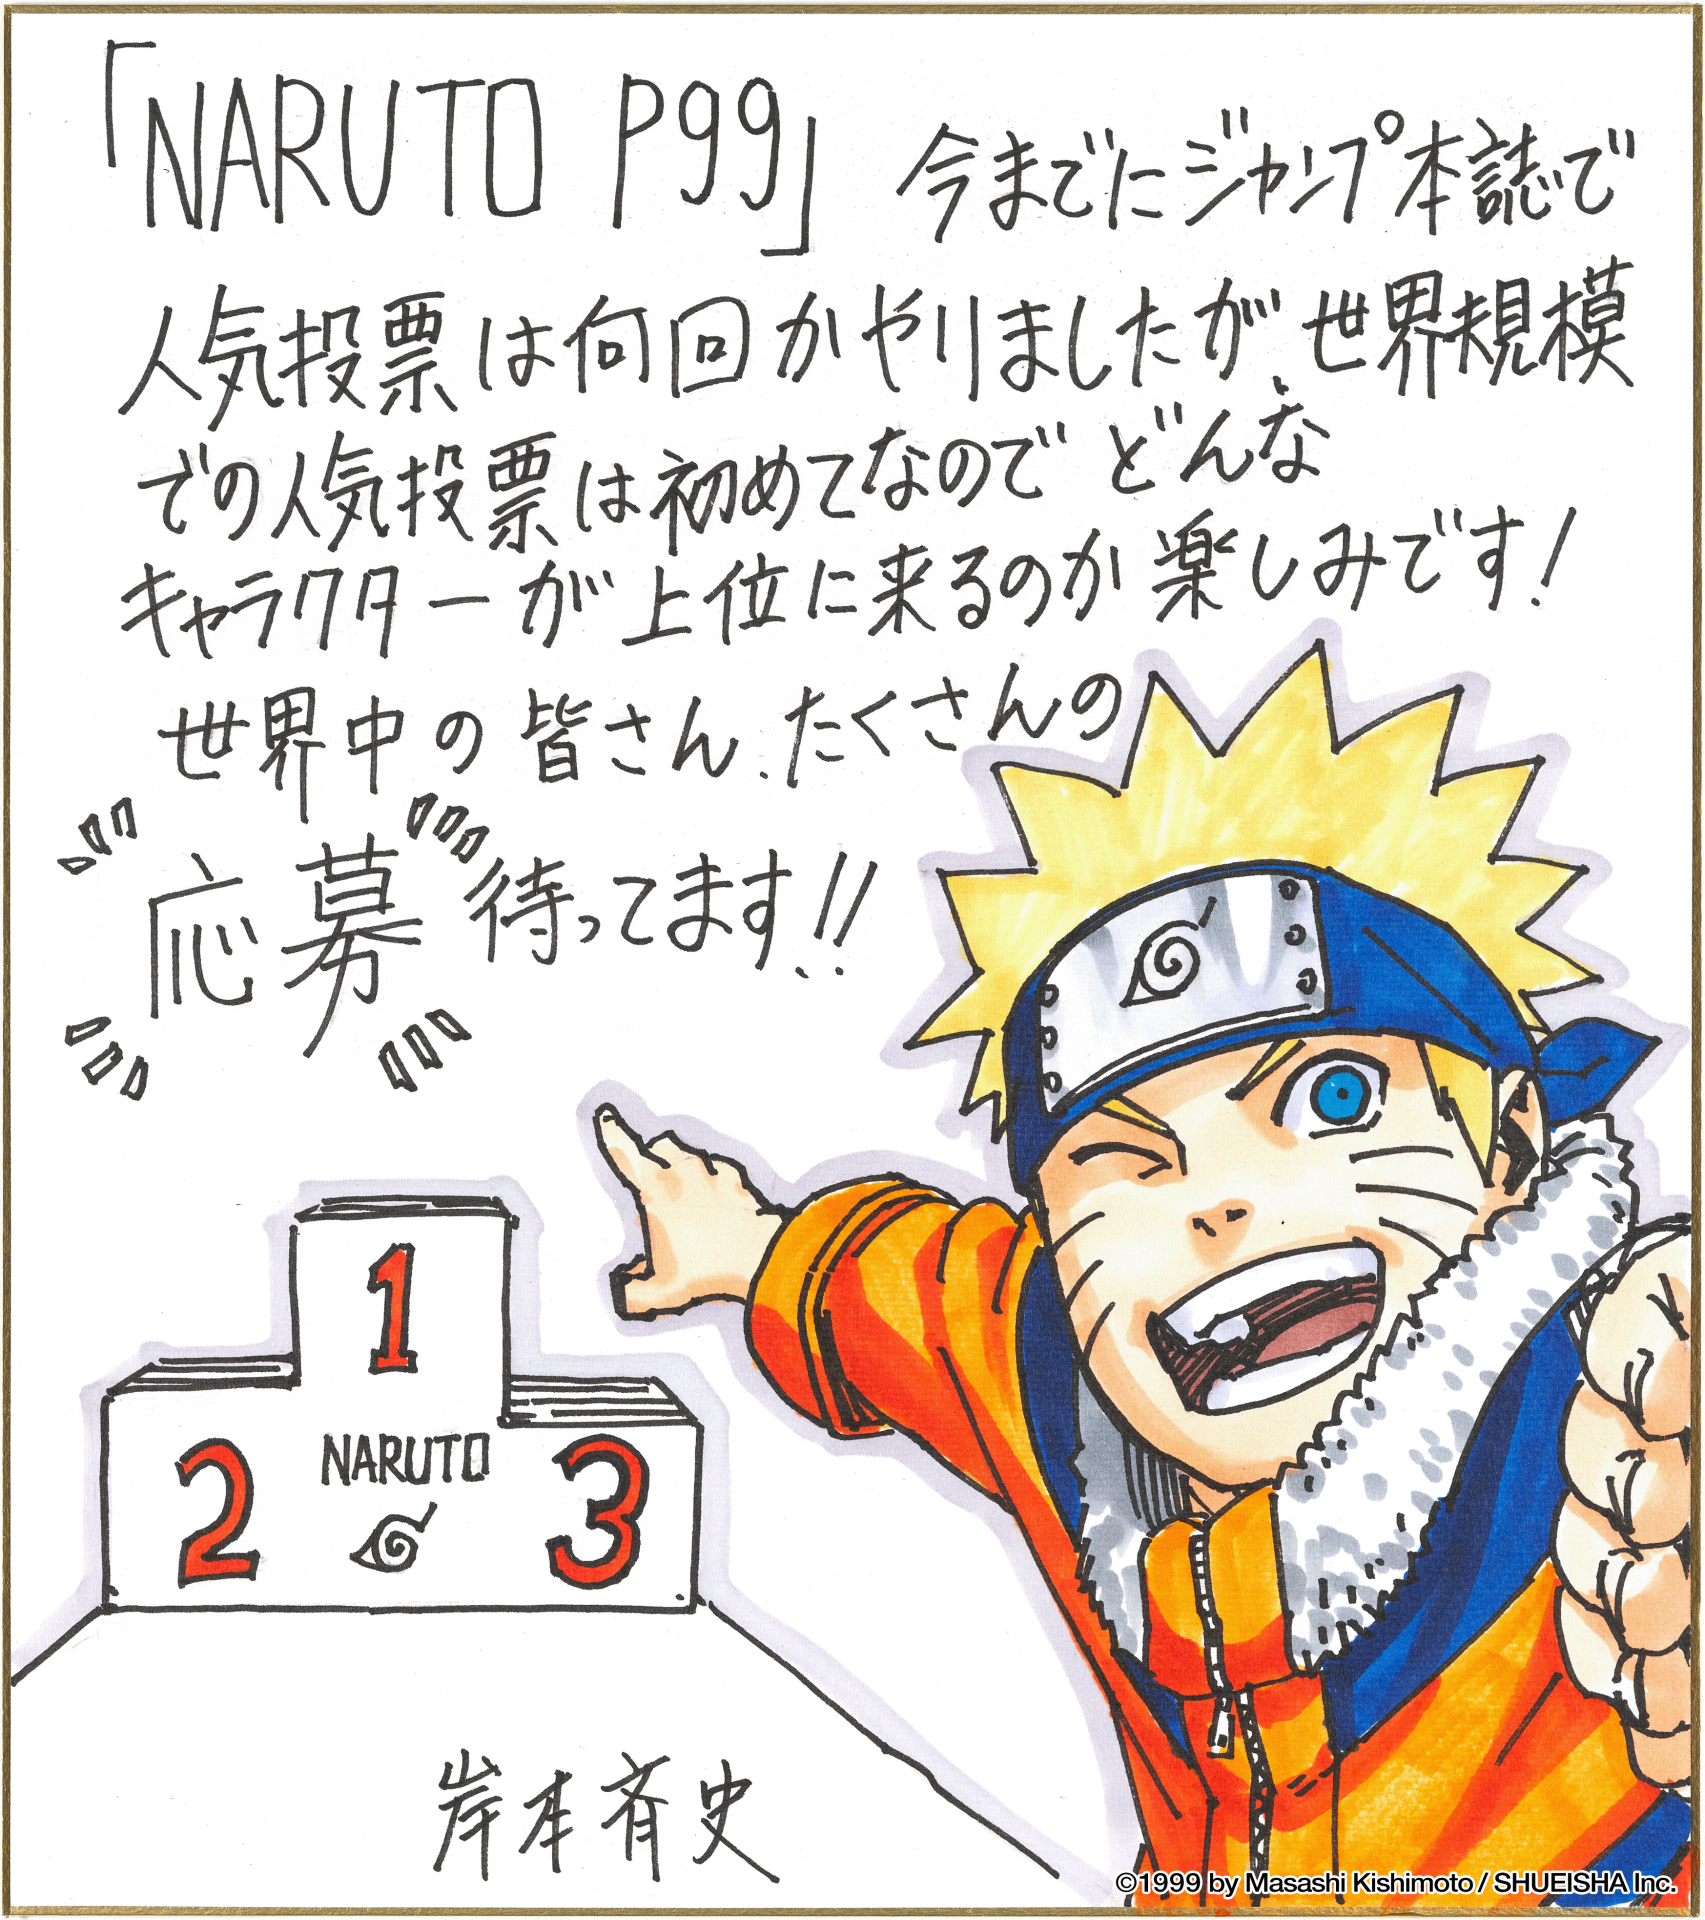 「NARUTO P99」 今までにジャンプ本誌で
人気投票は何回かやりましたが、世界規模
での人気投票は初めてなので どんな
キャラクターが上位に来るのか楽しみです!
世界中の皆さん、たくさんの
応募待ってます!!
1
2
NARUTO
3
岸本斉史
©1999 by Masashi Kishimoto / SHUEISHA Inc.